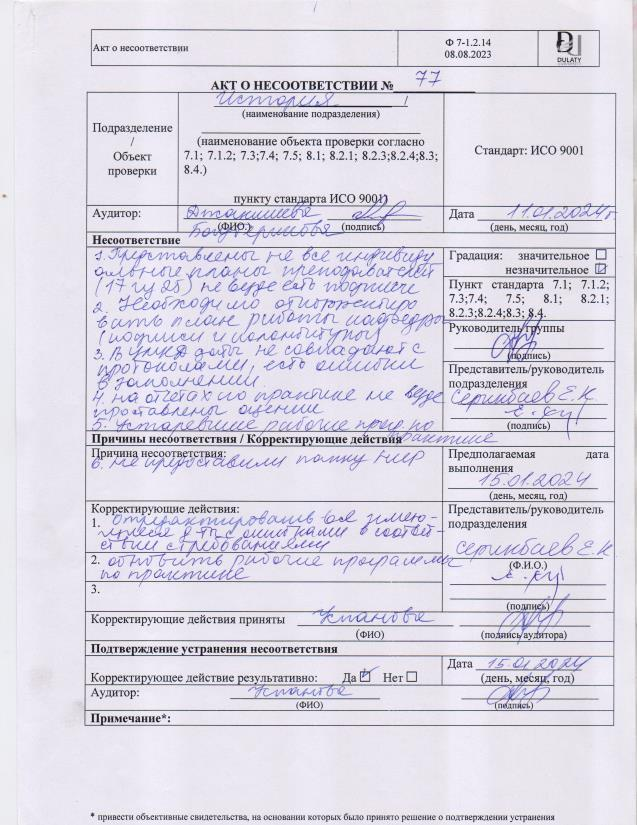 Акт о несоответствии
Ф 7-1.2.14
08.08.2023
DULATY
АКТ О НЕСООТВЕТСТВИИ № 77
Подразделение
/
Объект
проверки
История
(наименование подразделения)
(наименование объекта проверки согласно
7.1; 7.1.2; 7.3;7.4; 7.5; 8.1; 8.2.1; 8.2.3;8.2.4;8.3;
8.4.)
пункту стандарта ИСО 9001)
Стандарт: ИСО 9001
Аудитор:
(ФИО.) (подпись)
Дата 11.01.2024г
(день, месяц, год)
Несоответствие
1. Представлены не все индивиду
альные планы преподавателей
(17 из 25) не везде есть подписи
2. Необходимо
вить план работы кафедры
(подписи и
3. В УМКД даты не совпадают с
протоколами, есть ошибки
в заполнении
4. на отчетах по практике не везде
проставлены оценки
5. Устаревшие рабочие прог. по
практике
Градация: значительное ☐
незначительное ☑
Пункт стандарта 7.1; 7.1.2;
7.3;7.4; 7.5; 8.1; 8.2.1;
8.2.3;8.2.4;8.3; 8.4.
Руководитель группы
(подпись)
Представитель/руководитель
подразделения
Серикбаев Е.К.
(подпись)
Причины несоответствия / Корректирующие действия
Причина несоответствия:
6. Не предоставили папку НИР
Предполагаемая дата
выполнения
15.01.2024
(день, месяц, год)
Корректирующие действия:
1. Отредактировать все имею-
щиеся в соответ-
ствии с требованиями
2. обновить рабочие программы
по практике
3.
Представитель/руководитель
подразделения
Серикбаев Е.К
(Ф.И.О.)
(подпись)
Корректирующие действия приняты Успанова
(ФИО) (подпись аудитора)
Подтверждение устранения несоответствия
Корректирующее действие результативно: Да ☑ Нет ☐
Дата 15.01.2024
(день, месяц, год)
Аудитор: Успанова
(ФИО) (подпись)
Примечание*:
* привести объективные свидетельства, на основании которых было принято решение о подтверждении устранения